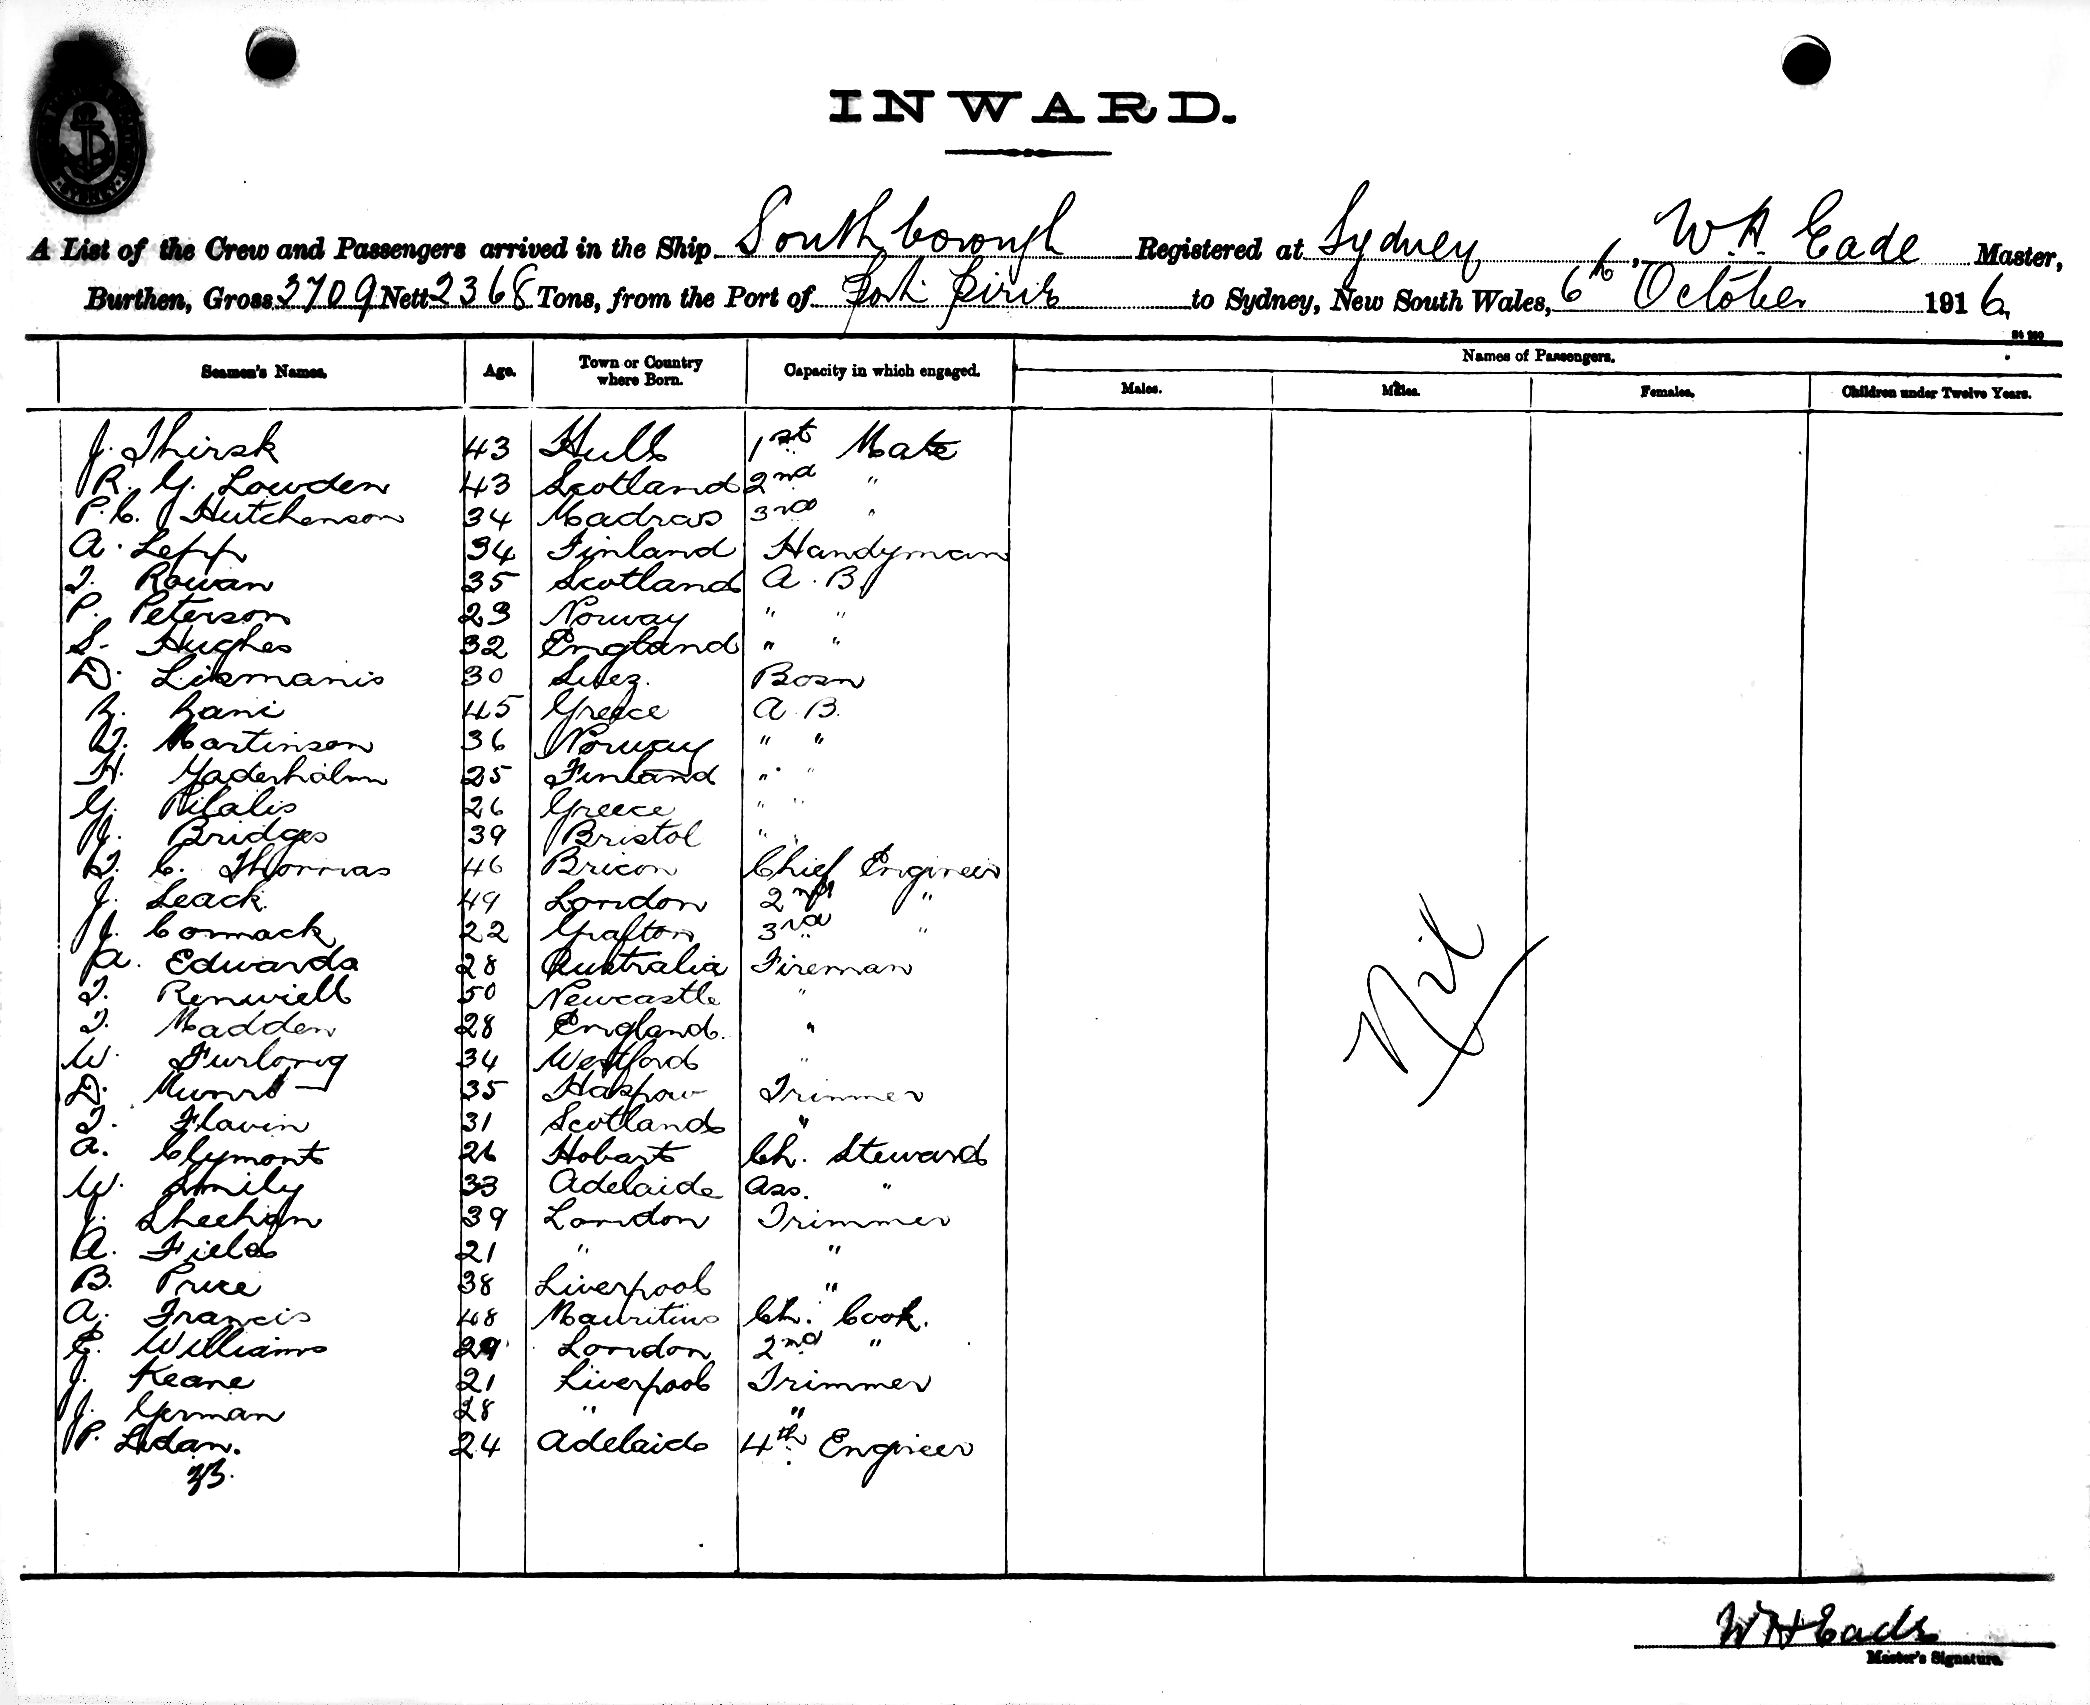 INWARD.
A List of the Crew and Passengers arrived in the Ship Southborough Registered at Sydney, W. H. Eade Master,
Burthen, Gross 3709 Nett 2368 Tons, from the Port of Port Pirie to Sydney, New South Wales, 6th October 1916.
Names of Passengers.
Seamen's Names. Age. Town or Country where Born. Capacity in which engaged. Males. Males. Females. Children under Twelve Years.
J. Thirsk 43 Hull 1st Mate
R. G. Lowden 43 Scotland 2nd "
P. C. Hutchenson 34 Madras 3rd "
A. Lepp 34 Finland Handyman
T. Rowan 35 Scotland A. B
P. Peterson 23 Norway " "
S. Hughes 32 England " "
D. Lismanis 30 Suez. Bosn
R. Rani 45 Greece A. B.
T. Martinson 36 Norway " "
H. Gaderholm 25 Finland " "
G. Pilalis 26 Greece " "
J. Bridges 39 Bristol " "
T. C. Thomas 46 Bricon Chief Engineer
J. Leack 49 London 2nd "
J. Cormack 22 Grafton 3rd "
A. Edwards 28 Australia Fireman
T. Renwiell 50 Newcastle "
T. Madden 28 England. "
W. Furlong 34 Westford "
D. Munro 35 Trimmer
T. Flavin 31 Scotland "
A. Clymont 26 Hobart Ch. Steward
W. Smily 33 Adelaide Ass. "
J. Sheehan 39 London Trimmer
A. Field 21 " "
B. Price 38 Liverpool "
A. Francis 48 Mauritius Ch. Cook.
C. Williams 29 London 2nd "
J. Keane 21 Liverpool Trimmer
J. German 28 " "
P. Ledan. 24 Adelaide 4th Engineer
33.
Nil
W H Eade
Master's Signature.